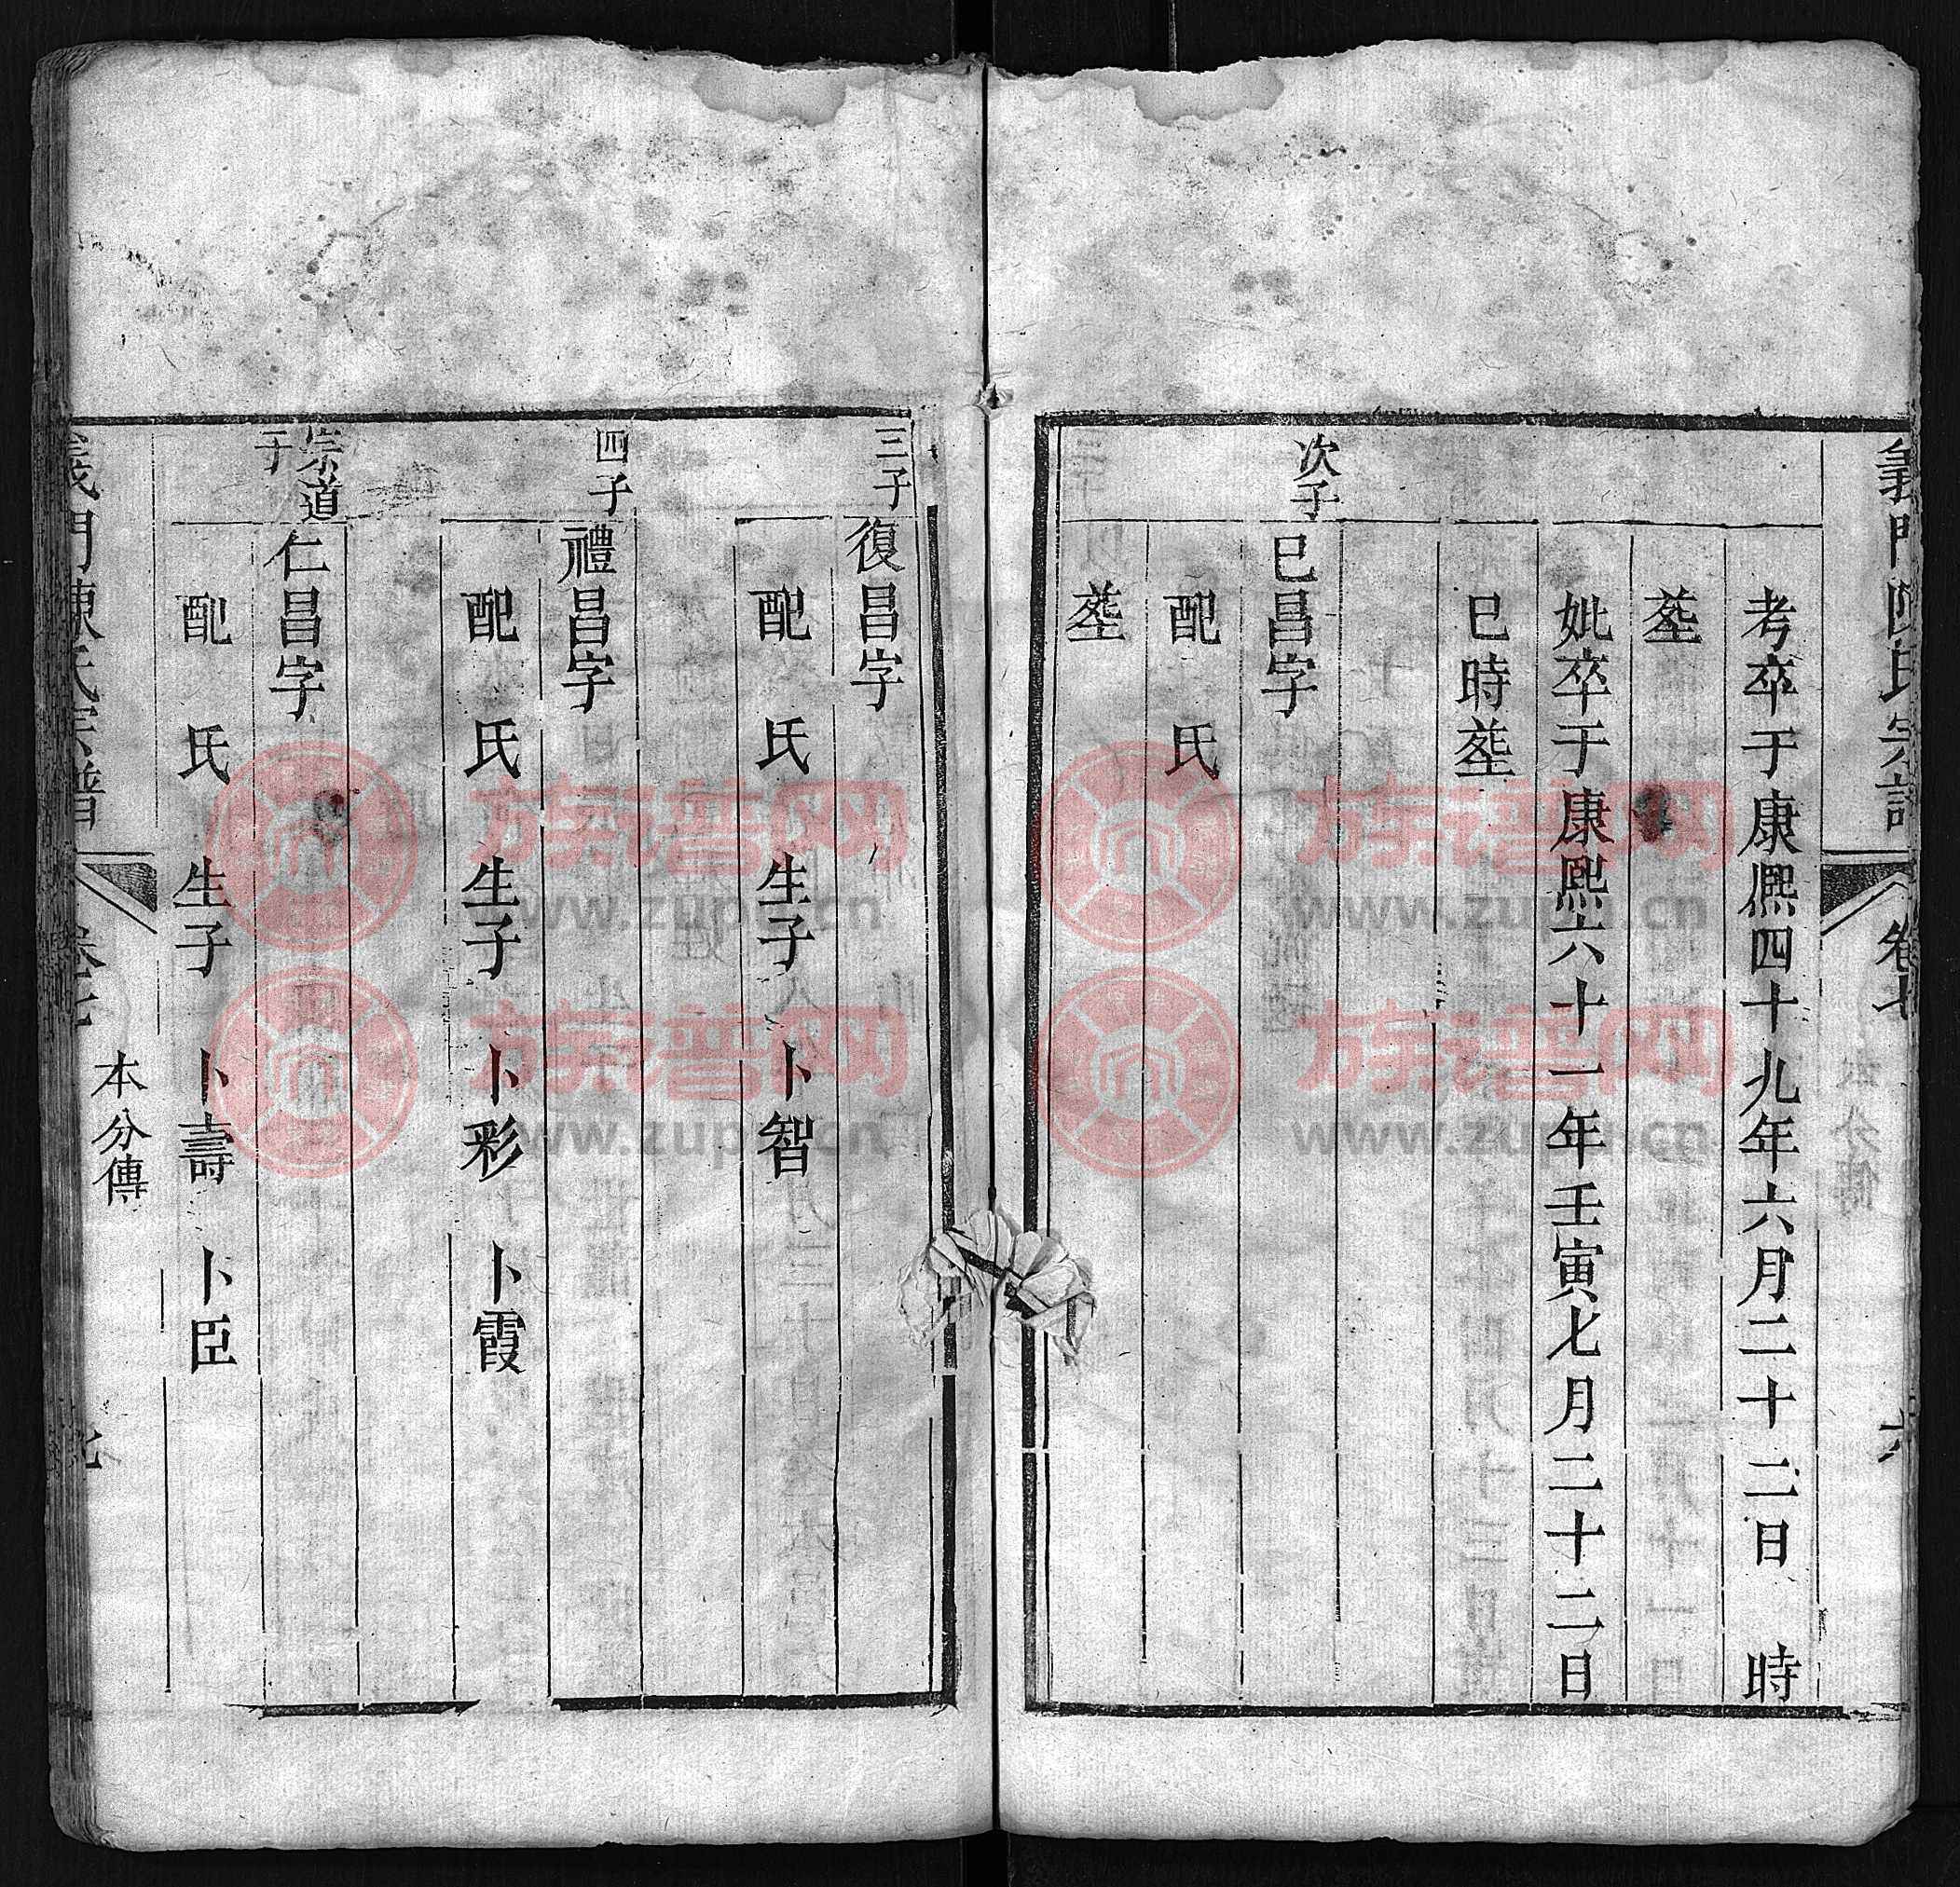 義門陳氏宗譜
卷七
六
考卒于康熈四十九年六月二十二日 時
塟
妣卒于康熙六十一年壬寅七月二十二日
巳時塟
次子
巳昌字
配 氏
塟
三子
復昌字
配 氏 生子 卜智
四子
禮昌字
配 氏 生子 卜彩 卜霞
宗道
子
仁昌字
配 氏 生子 卜壽 卜臣
義門陳氏宗譜
卷七
本分傳
九
族谱网
www.zupu.cn
族谱网
www.zupu.cn
族谱网
www.zupu.cn
族谱网
www.zupu.cn